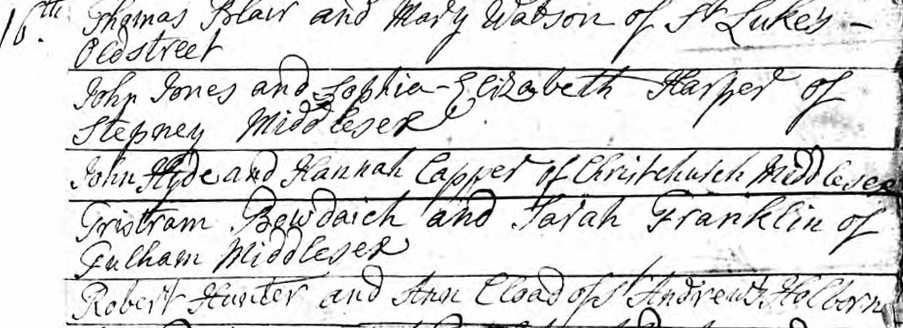 16th. Thomas Blair and Mary Watson of St Luke's -
Old street
John Jones and Sophia-Elizabeth Harper of
Stepney Middlesex
John Hyde and Hannah Capper of Christchurch Middlesex
Gristram Bowdaich and Sarah Franklin of
Fulham Middlesex
Robert Hunter and Ann Cload of St Andrews Holborn